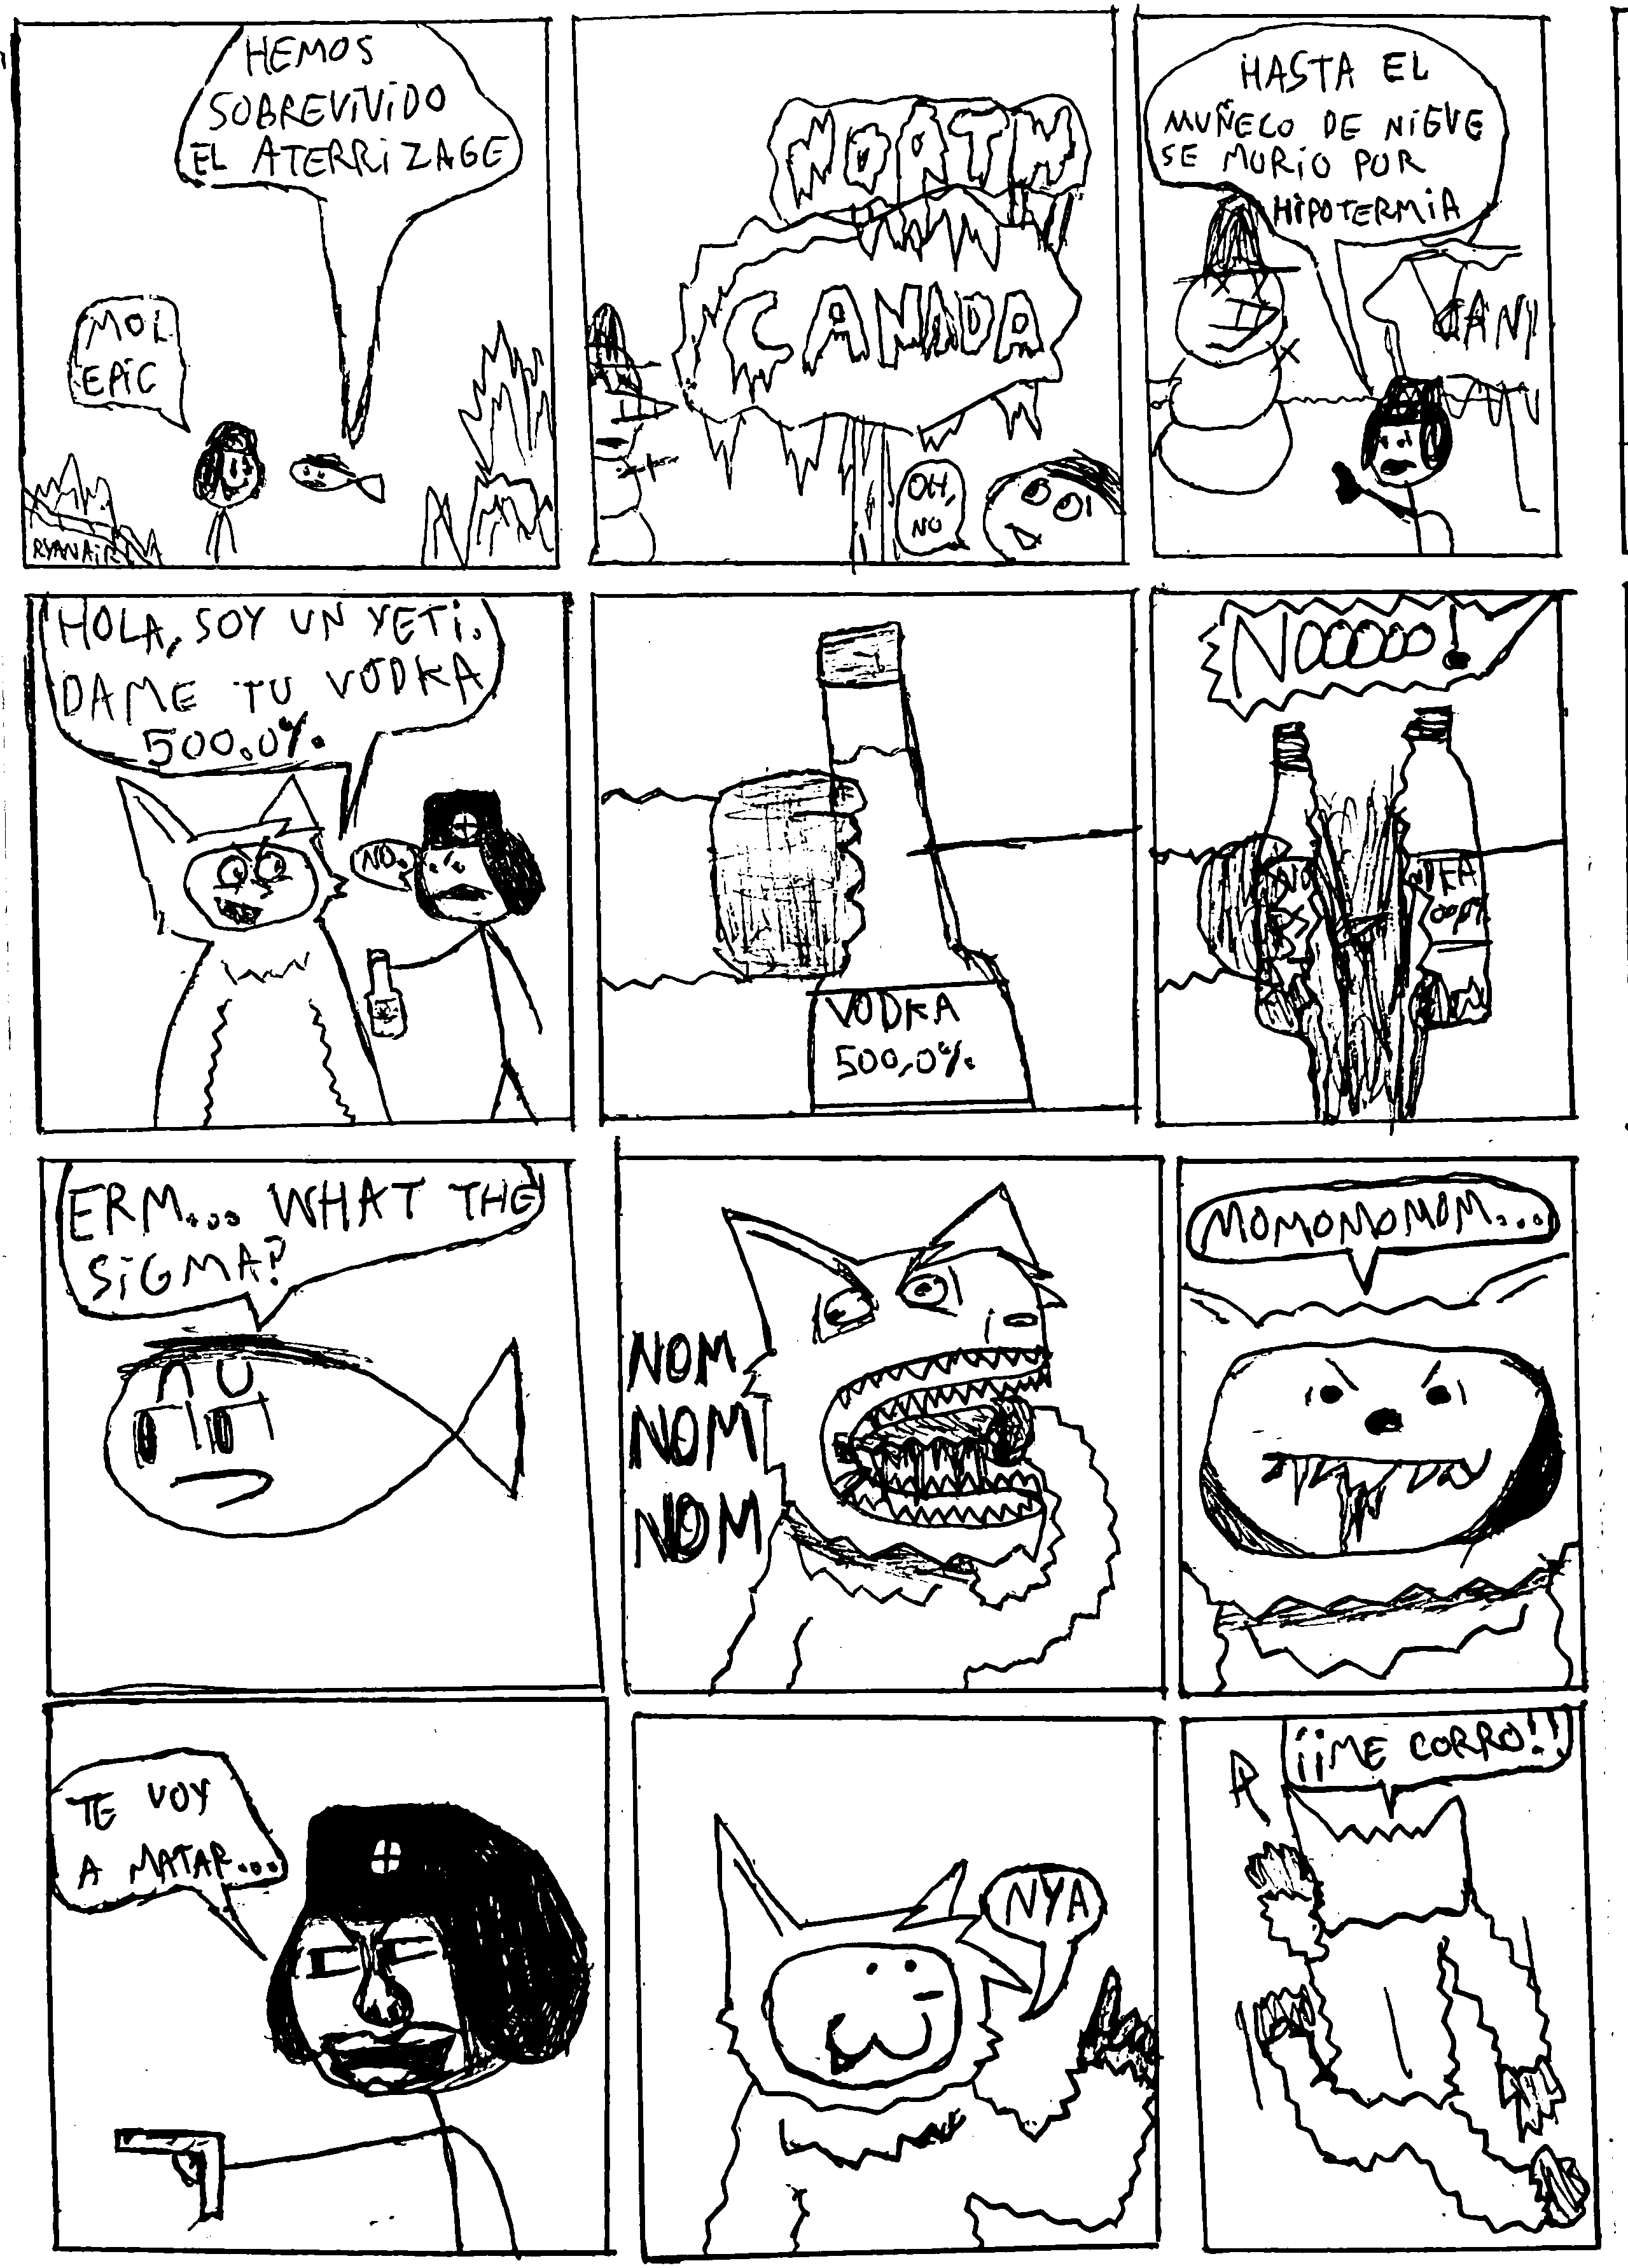 HEMOS
SOBREVIVIDO
EL ATERRIZAGE
MOL
EPIC
RYANAIR
NORTH
CANADA
OH,
NO
HASTA EL
MUÑECO DE NIEVE
SE MURIO POR
HIPOTERMIA
CAN
HOLA, SOY UN YETI.
DAME TU VODKA
500.0%
NO.
VODKA
500,0%
NOOOOO!
ERM... WHAT THE
SIGMA?
NOM
NOM
NOM
MOMOMOMOM...
TE VOY
A MATAR...
NYA
¡¡ME CORRO!!